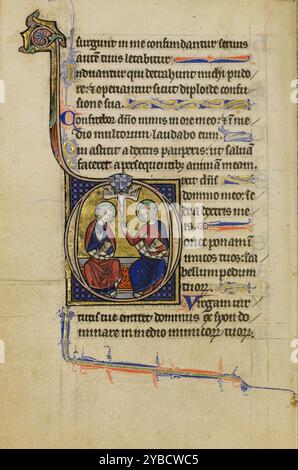 surgunt in me confundantur seruus
autem tuus letabitur
Induantur qui detrahunt michi pudo
re: ⁊ operiantur sicut diploide confu
sione sua.
Confitebor dño nimis in ore meo: ⁊ in me
dio multorum laudabo eum.
Qui astitit a dextris pauperis: ut saluā
faceret a persequentibus animam meam.
Dixit dñs
domino meo: se
de a dextris me
is.
Donec ponam i
nimicos tuos: sca
bellum pedum
tuorꝝ.
Virgam uir
tutis tue emittet dominus ex syon: do
minare in medio inimicorꝝ tuorꝝ.
alamy
Image ID: 2YBCWC5
www.alamy.com